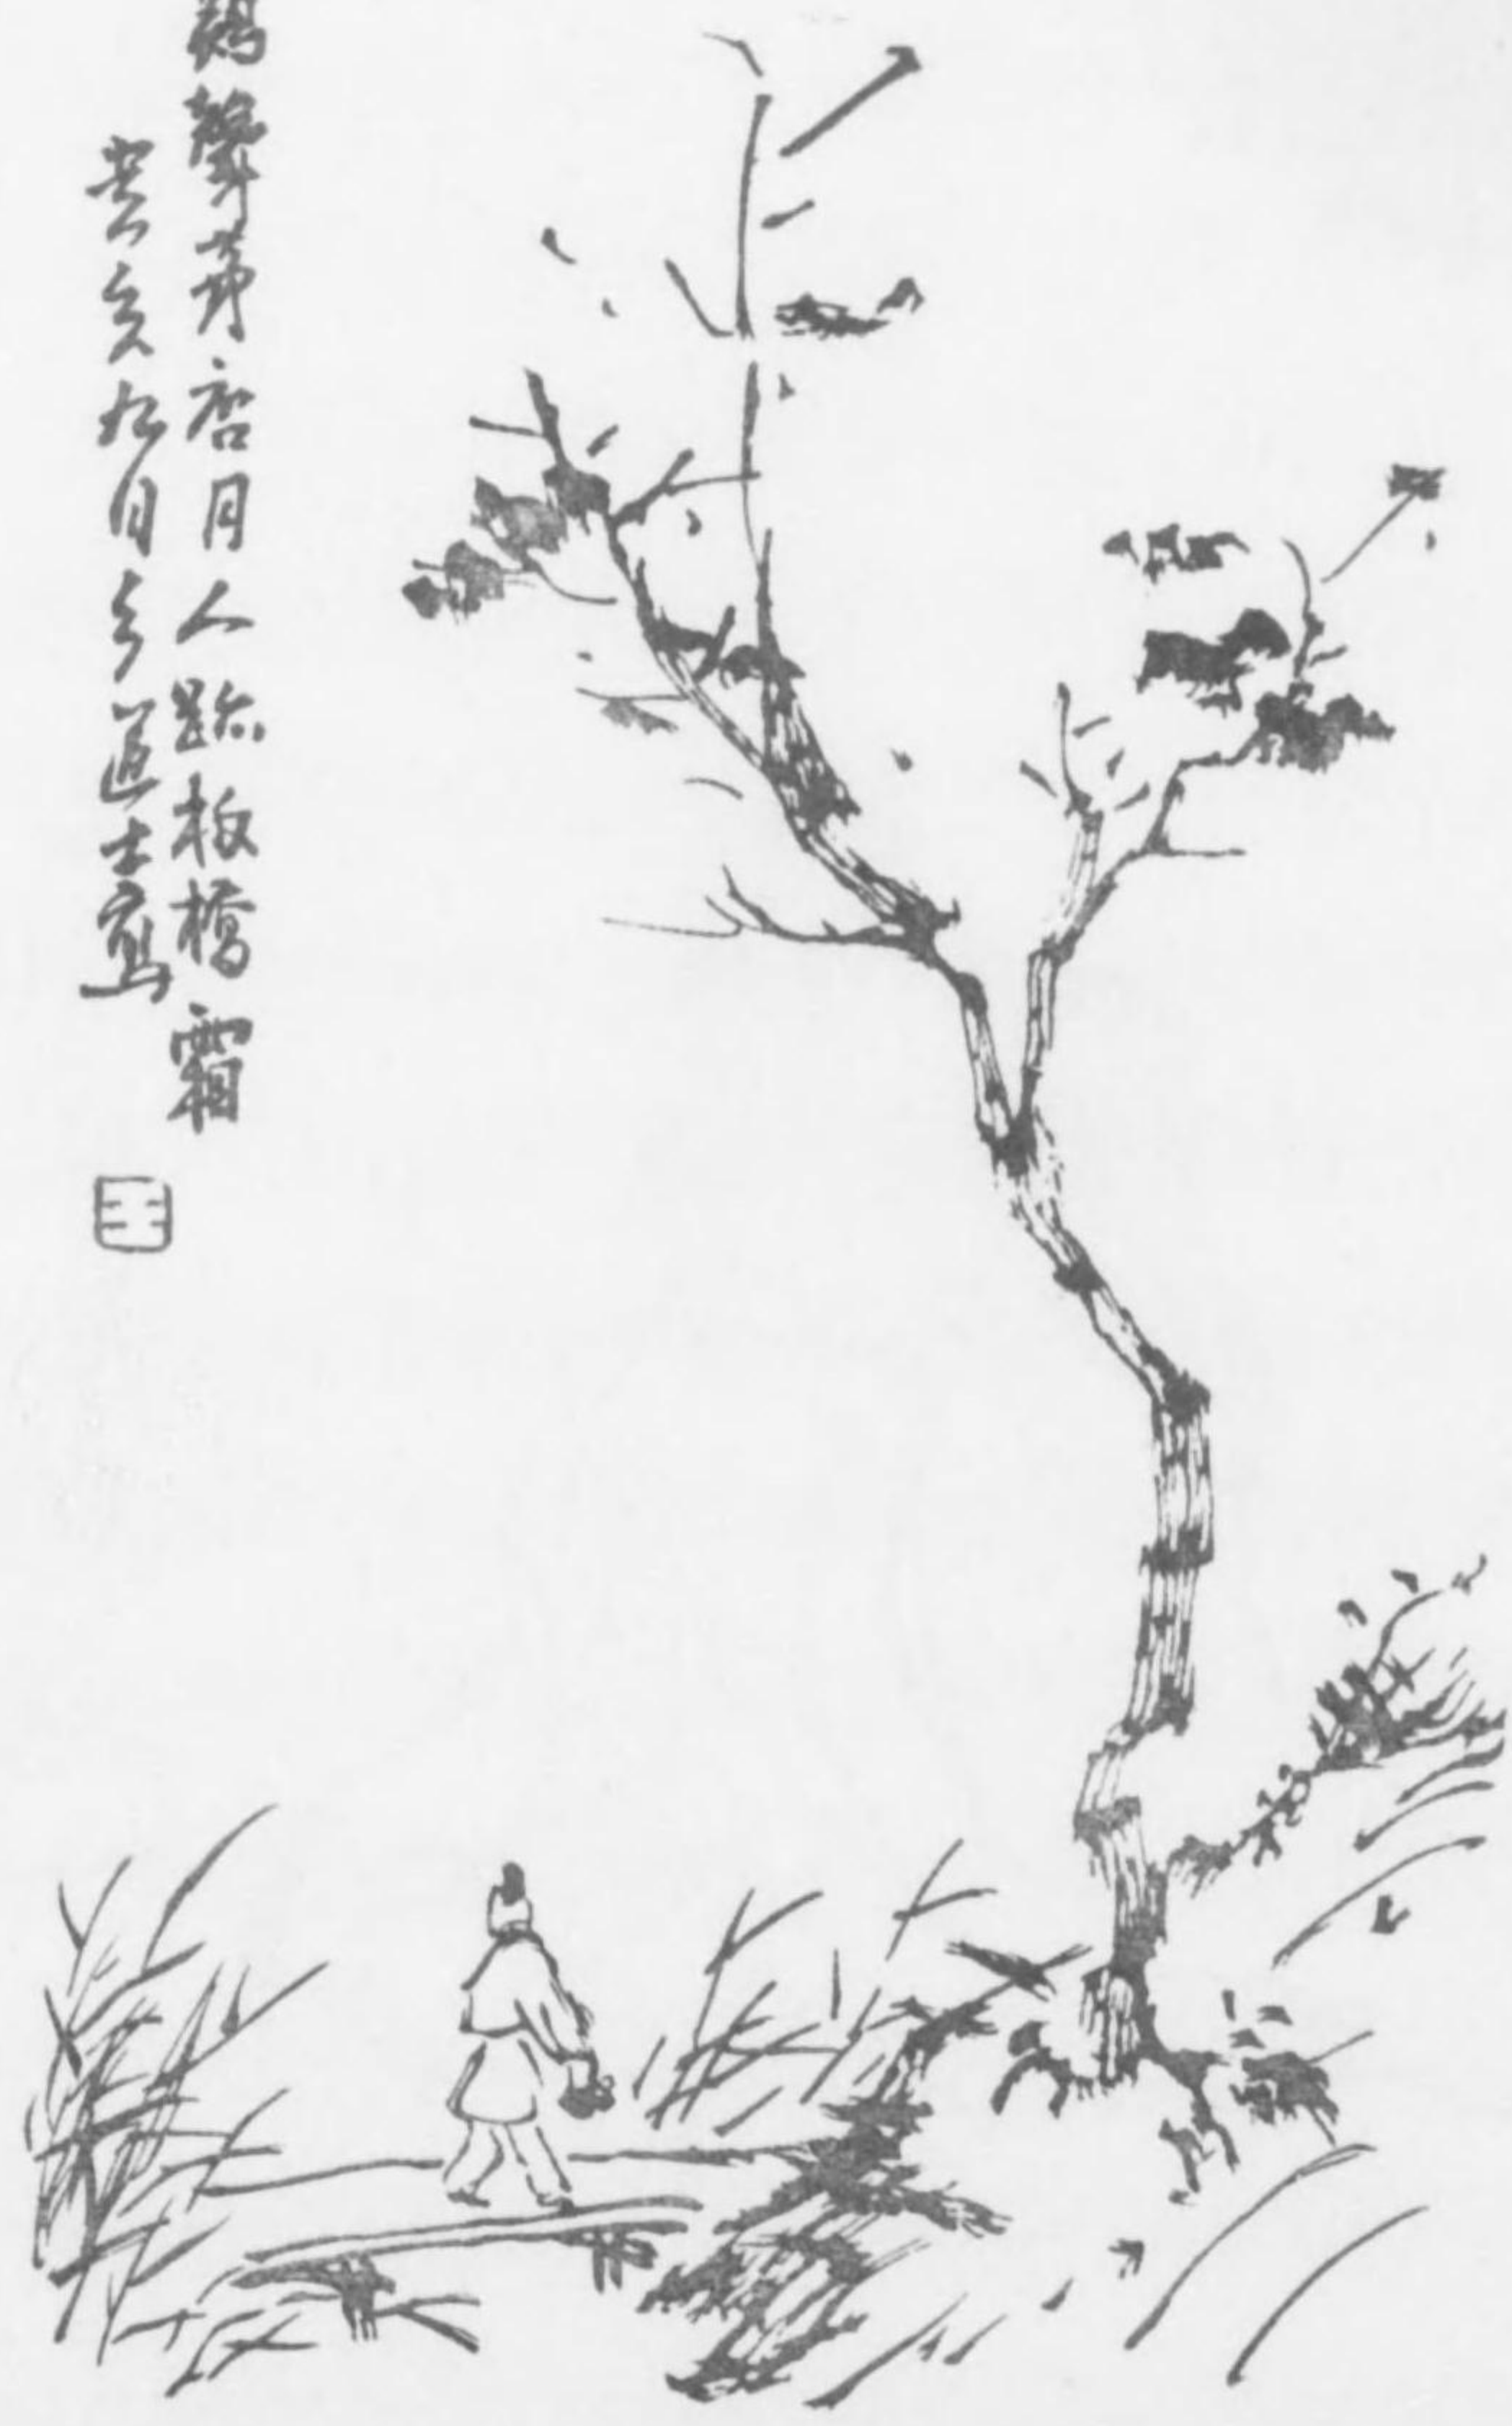 鷄聲茅店月人跡板橋霜
癸亥九月道士寫